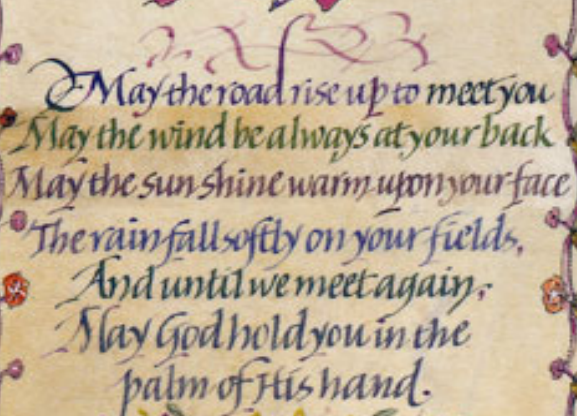 May the road rise up to meet you
May the wind be always at your back
May the sun shine warm upon your face
The rain fall softly on your fields,
And until we meet again,
May God hold you in the
palm of His hand.